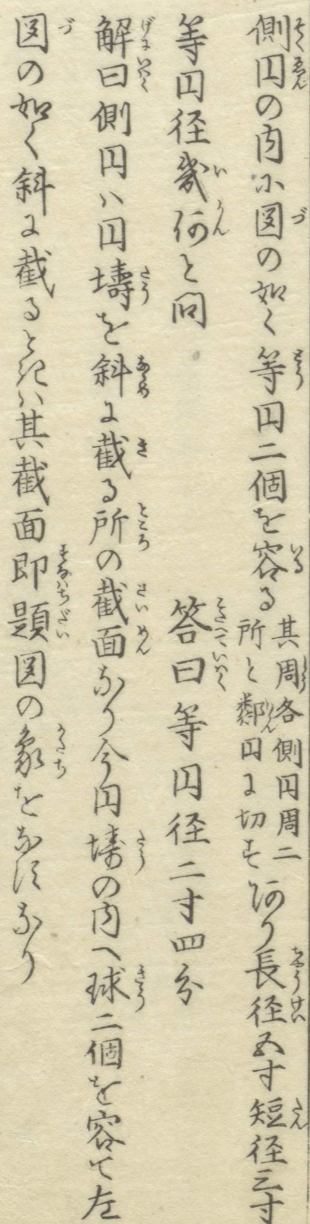 側円の内に図の如く等円二個を容る其周各側円周二所と鄰円に切すあり長径五寸短径三寸
等円径幾何と問　答曰等円径二寸四分
解曰側円ハ円壔を斜に截る所の截面なり今円壔の内へ球二個を容て左
図の如く斜に截るときハ其截面即題図の象をなすなり